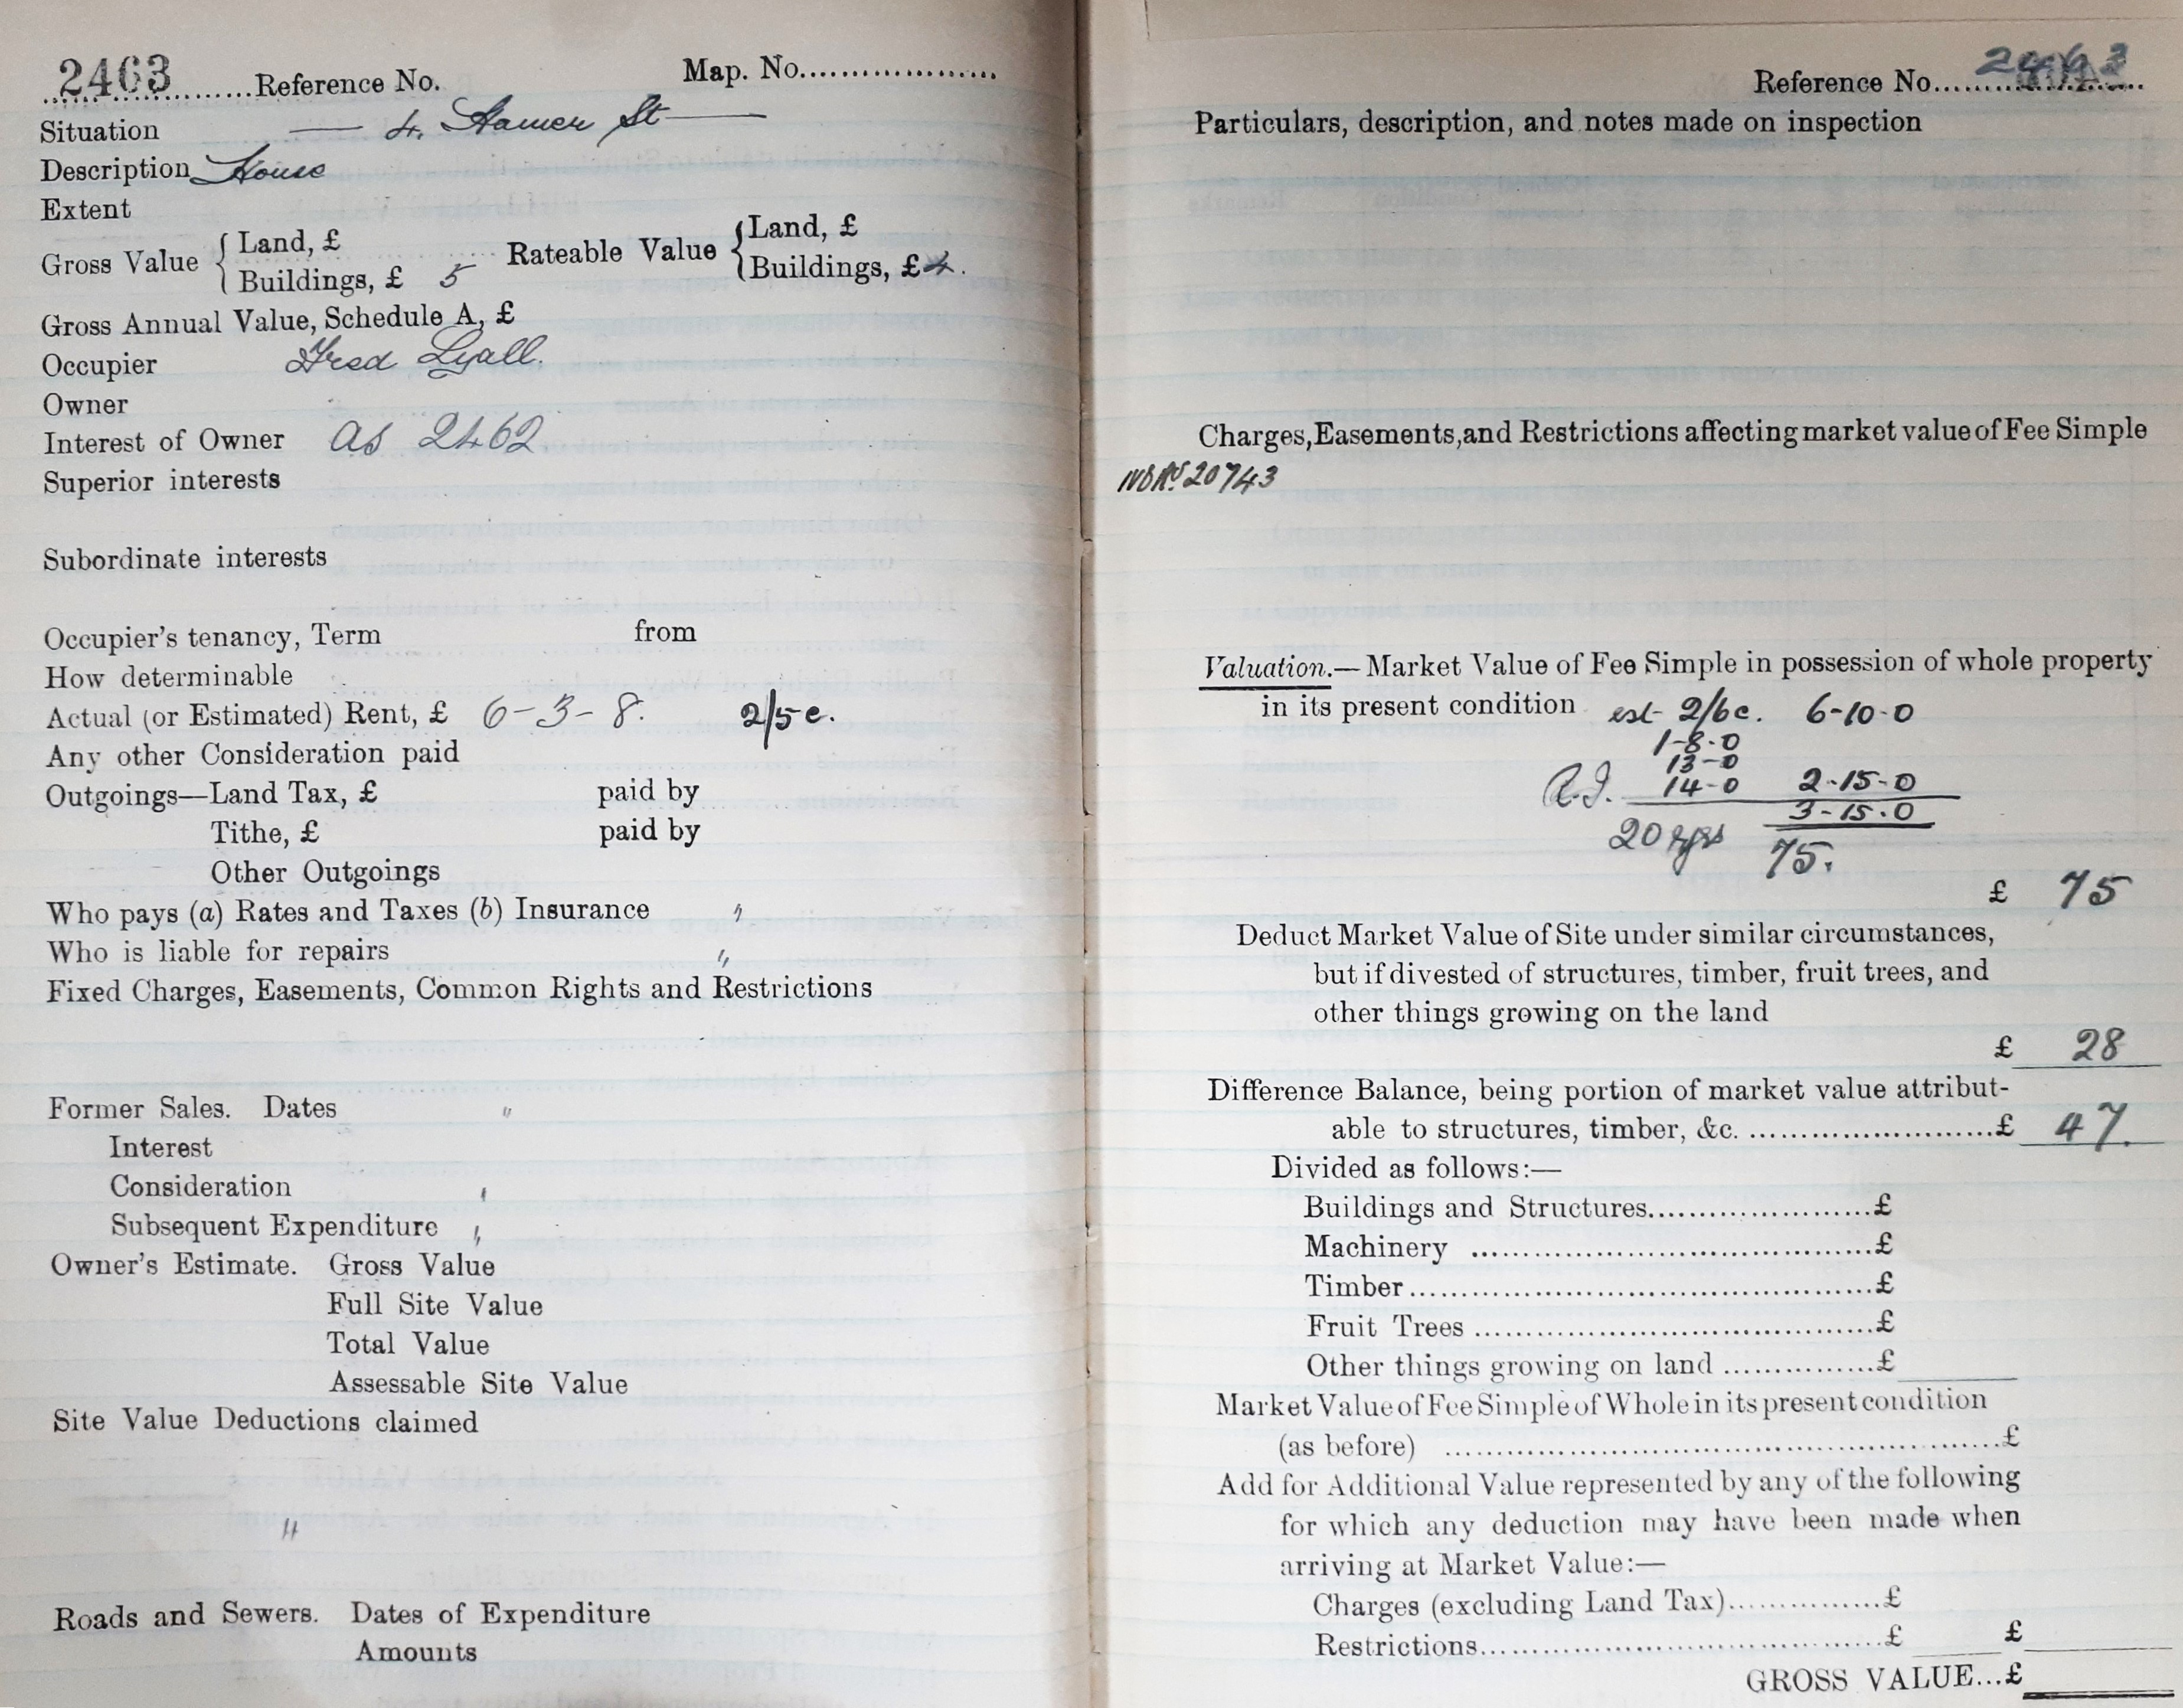 2463 Reference No. Map. No.
Situation — 4. Hamer St —
Description House
Extent
Gross Value { Land, £ Rateable Value { Land, £
Buildings, £ 5 Buildings, £ 4.
Gross Annual Value, Schedule A, £
Occupier Fred Lyall.
Owner
Interest of Owner as 2462
Superior interests
Subordinate interests
Occupier's tenancy, Term from
How determinable
Actual (or Estimated) Rent, £ 6-3-8. 2/5 e.
Any other Consideration paid
Outgoings—Land Tax, £ paid by
Tithe, £ paid by
Other Outgoings
Who pays (a) Rates and Taxes (b) Insurance "
Who is liable for repairs "
Fixed Charges, Easements, Common Rights and Restrictions
Former Sales. Dates "
Interest
Consideration "
Subsequent Expenditure "
Owner's Estimate. Gross Value
Full Site Value
Total Value
Assessable Site Value
Site Value Deductions claimed
"
Roads and Sewers. Dates of Expenditure
Amounts
Reference No. 2463
Particulars, description, and notes made on inspection
Charges, Easements, and Restrictions affecting market value of Fee Simple
20743
Valuation.—Market Value of Fee Simple in possession of whole property
in its present condition est 2/6 e. 6-10-0
1-8-0
13-0
R.I. 14-0 2-15-0
3-15-0
20 yrs 75.
£ 75
Deduct Market Value of Site under similar circumstances,
but if divested of structures, timber, fruit trees, and
other things growing on the land
£ 28
Difference Balance, being portion of market value attribut-
able to structures, timber, &c. £ 47.
Divided as follows:—
Buildings and Structures £
Machinery £
Timber £
Fruit Trees £
Other things growing on land £
Market Value of Fee Simple of Whole in its present condition
(as before) £
Add for Additional Value represented by any of the following
for which any deduction may have been made when
arriving at Market Value:—
Charges (excluding Land Tax) £
Restrictions £ £
GROSS VALUE...£